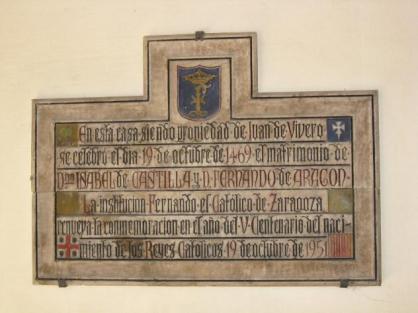 En esta casa siendo propiedad de Juan de Vivero
se celebro el dia 19 de octubre de 1469 el matrimonio de
Dña ISABEL de CASTILLA y D. FERNANDO de ARAGON
La institucion Fernando el Catolico de Zaragoza
renueva la conmemoracion en el año del V Centenario del naci-
miento de los Reyes Catolicos 19 de octubre de 1951